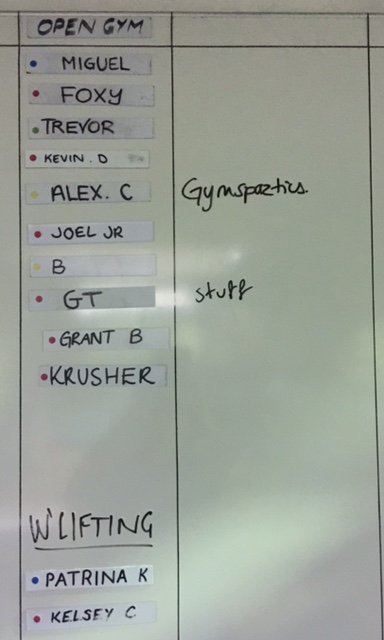 OPEN GYM
MIGUEL
FOXY
TREVOR
KEVIN. D
ALEX. C Gymspaztics.
JOEL JR
B
GT stuff
GRANT B
KRUSHER
W'LIFTING
PATRINA K
KELSEY C